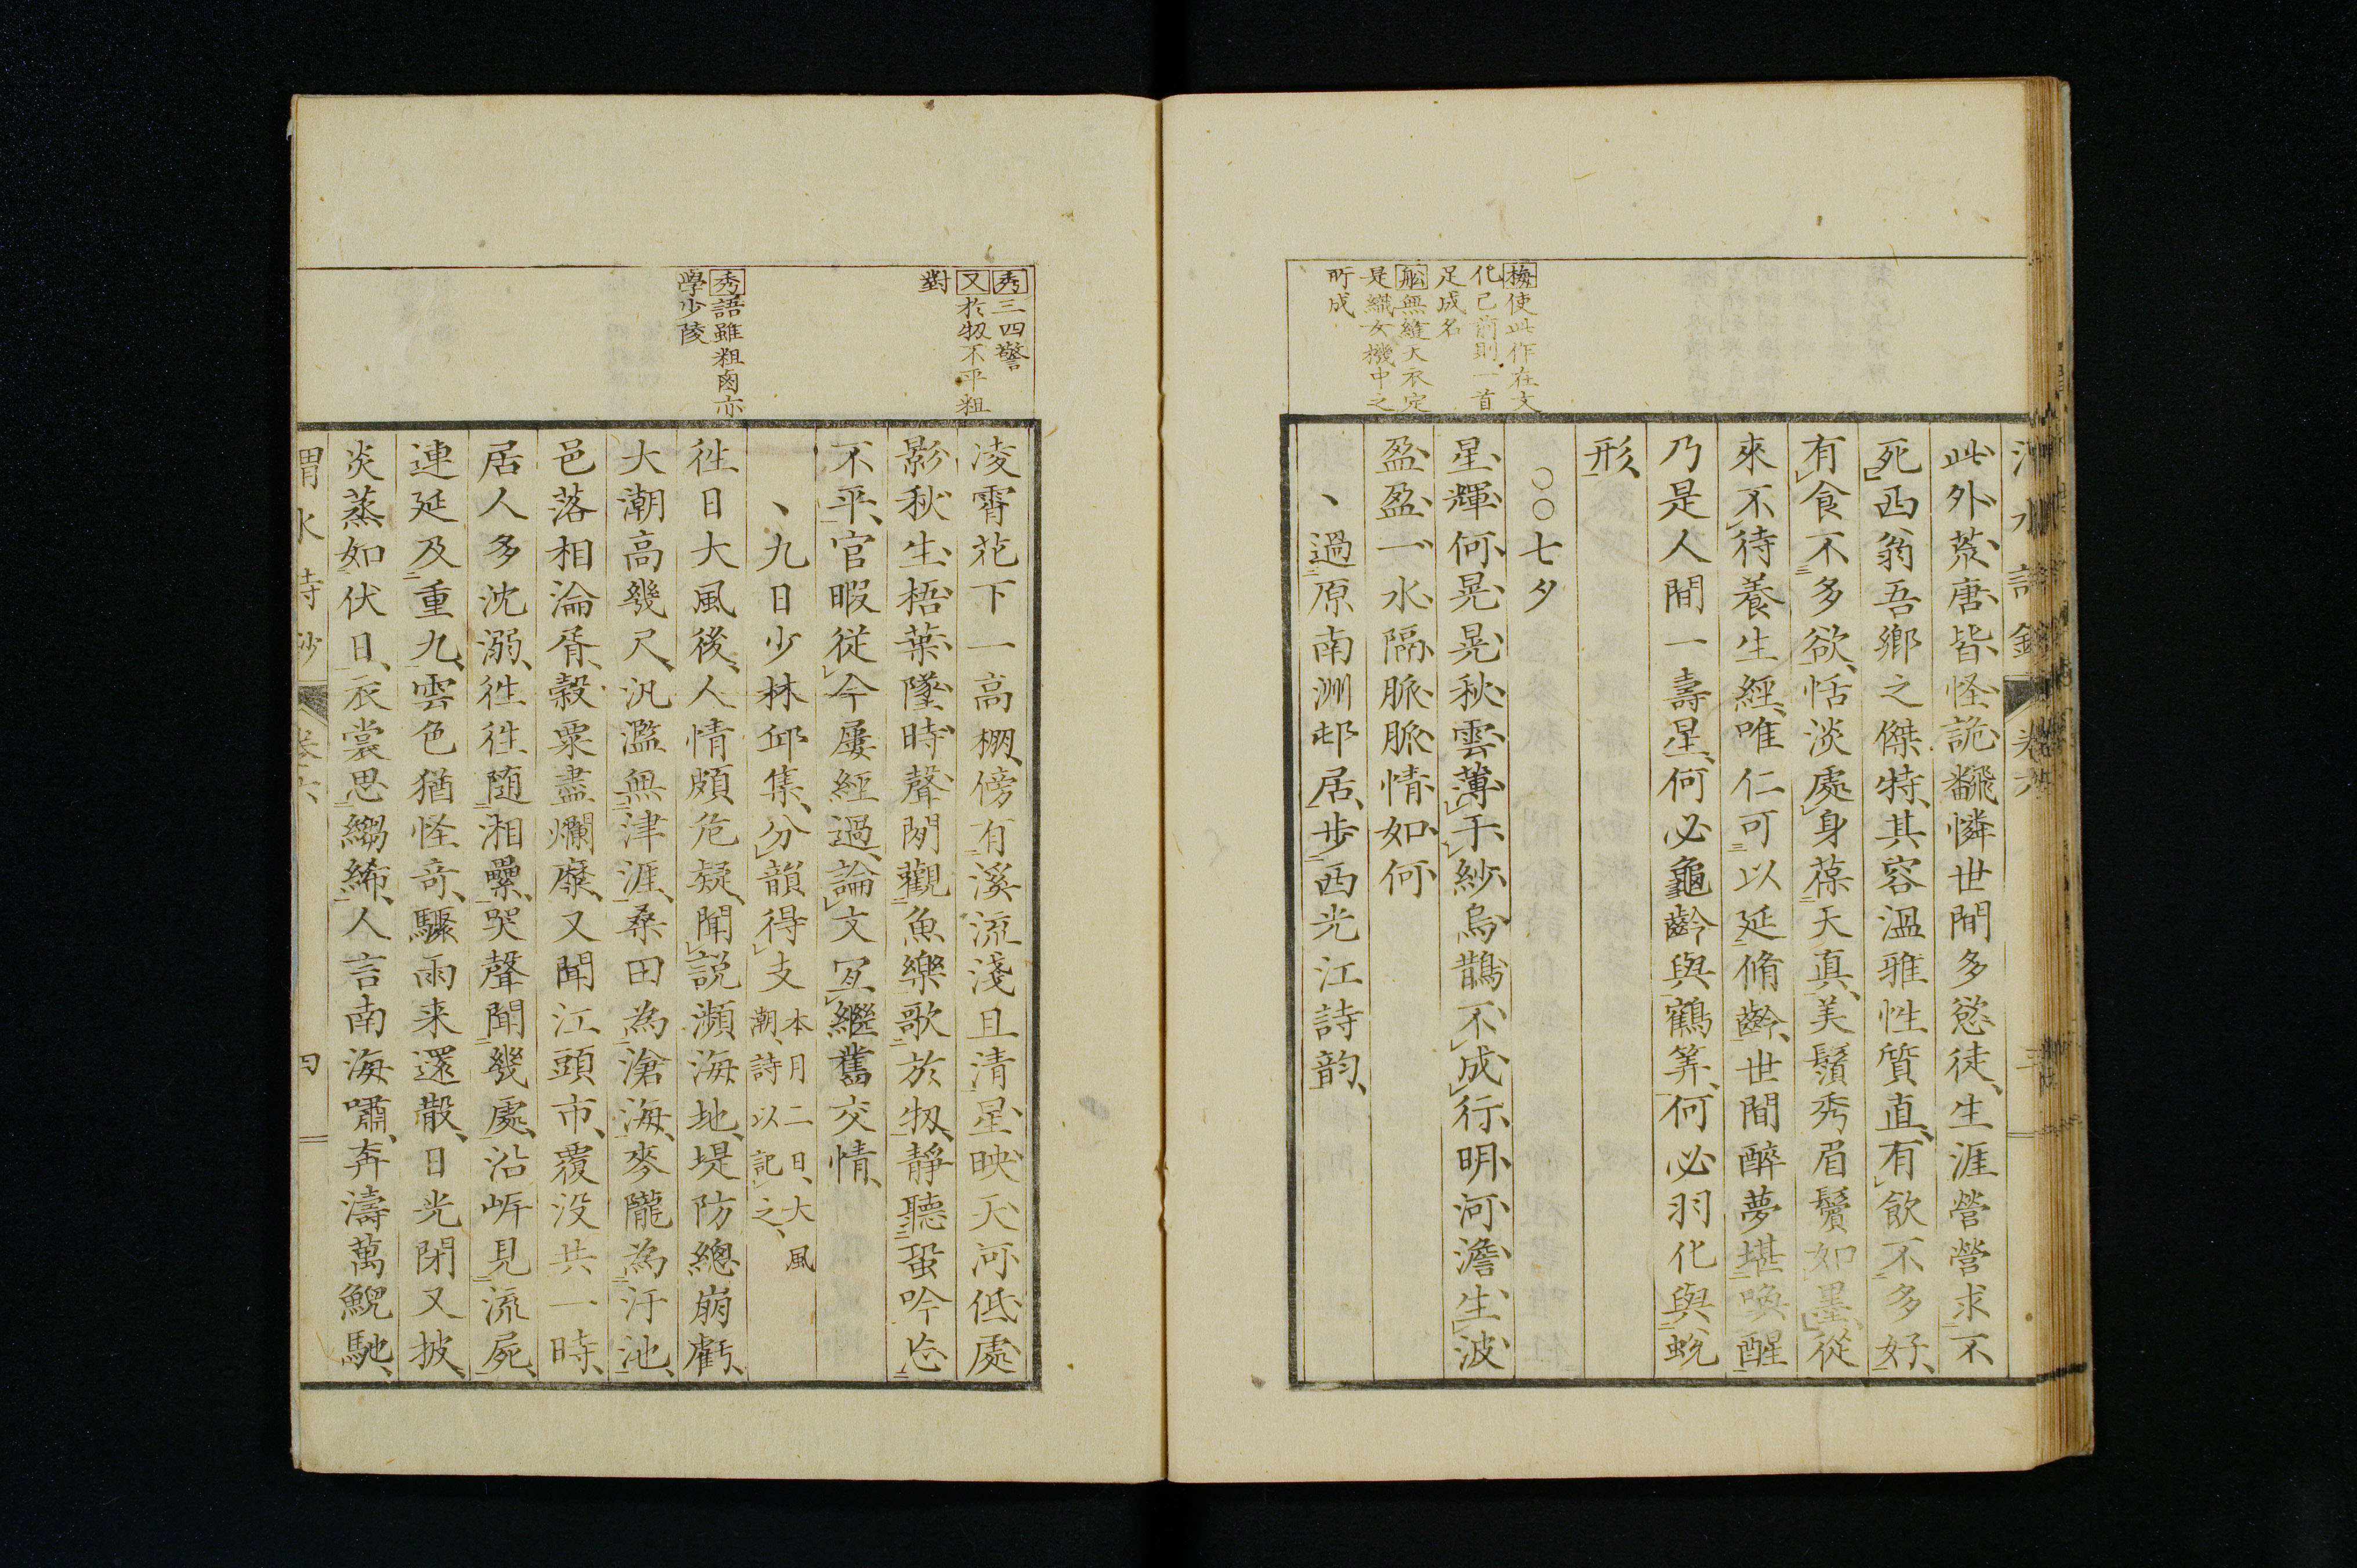 梅使此作在文
化已前則一首
足成名
舩無縫天衣定
是織女機中之
所成
此外荒唐皆怪詭飜憐世間多慾徒生涯營營求不
死西翁吾鄉之傑特其容溫雅性質直有飮不多好
有食不多欲恬淡處身葆天真美鬚秀眉鬢如墨從
來不待養生經唯仁可以延脩齡世間醉夢堪喚醒
乃是人間一壽星何必龜齡與鶴筭何必羽化與蛻
形
○○七夕
星輝何晃晃秋雲薄于紗烏鵲不成行明河澹生波
盈盈一水隔脈脈情如何
過原南洲邨居步西光江詩韵
秀三四警
又於牣不平粗
對
秀語雖粗鹵亦
學少陵
凌霄花下一高棚傍有溪流淺且清星映天河低處
影秋生梧葉墜時聲閑觀魚樂歌於牣靜聽蛩吟忘
不平官暇從今屢經過論文宜繼舊交情
九日少林邱集分韻得支
本月二日大風
潮詩以記之
徃日大風後人情頗危疑聞說瀕海地堤防總崩虧
大潮高幾尺汎濫無津涯桑田為滄海麥隴為汙池
邑落相淪胥穀粟盡爛糜又聞江頭市覆没共一時
居人多沈溺徃徃随湘纍哭聲聞幾處沿岍見流屍
連延及重九雲色猶怪奇驟雨来還散日光閉又披
炎蒸如伏日衣裳思縐絺人言南海嘯奔濤萬鯢馳